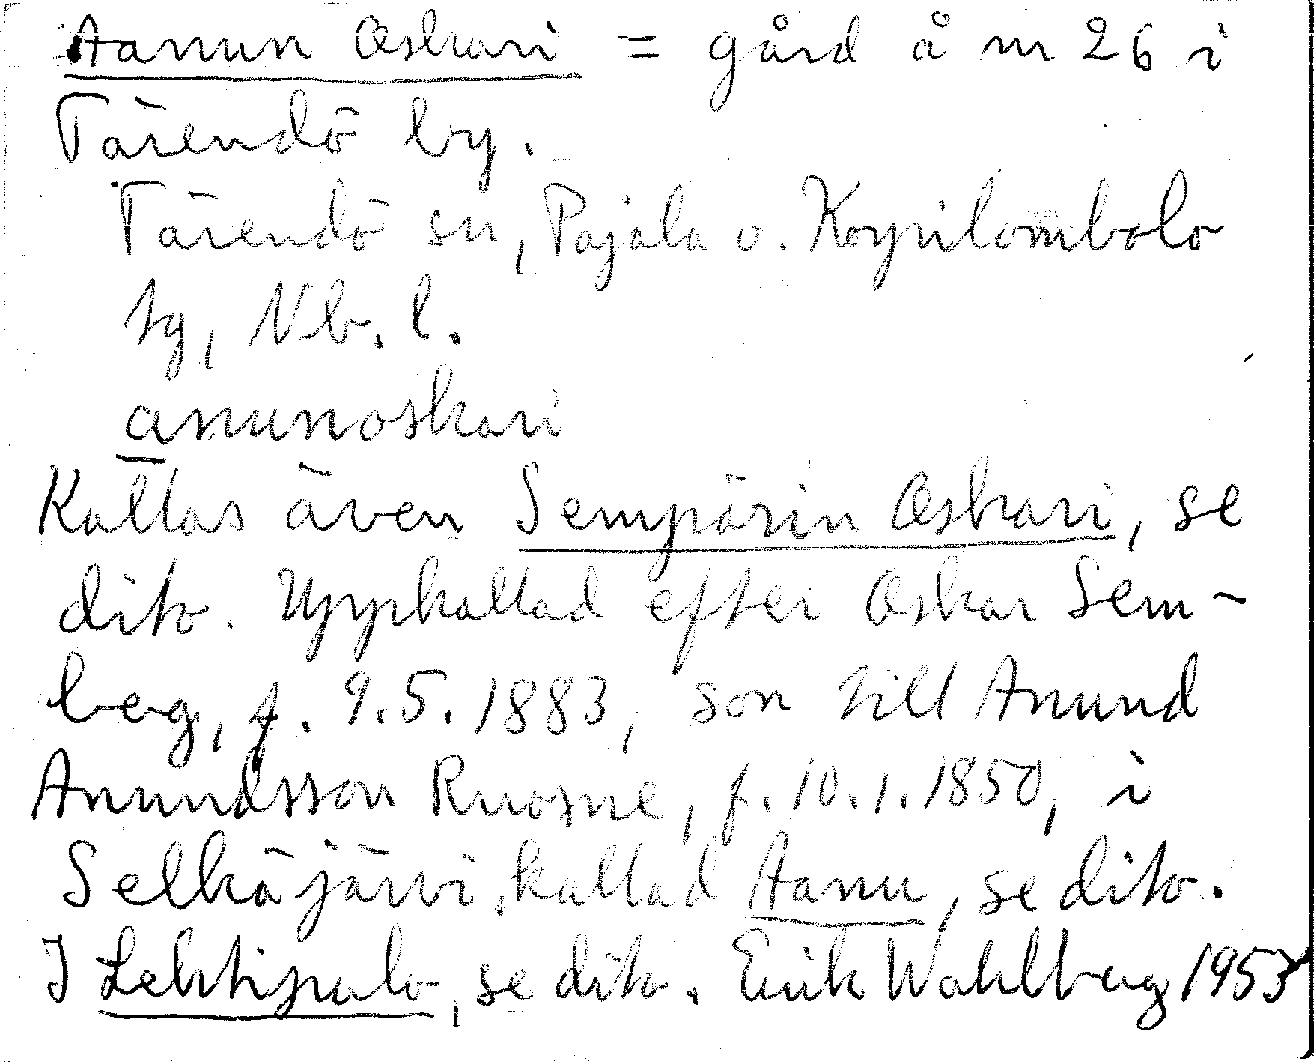 Aanun Oskari = gård å nr 26 i
Tärendö by.
Tärendö sn, Pajala o. Korpilombolo
tg, Nb. l.
anunoskari
Kallas även Sempärin Oskari, se
dito. Uppkallad efter Oskar Sem-
berg, f. 9.5.1883, son till Anund
Anundsson Ruosne, f. 10.1.1850, i
Selkäjärvi, kallad Aanu, se dito.
I Lehtipalo, se dito. Erik Wahlberg 1953